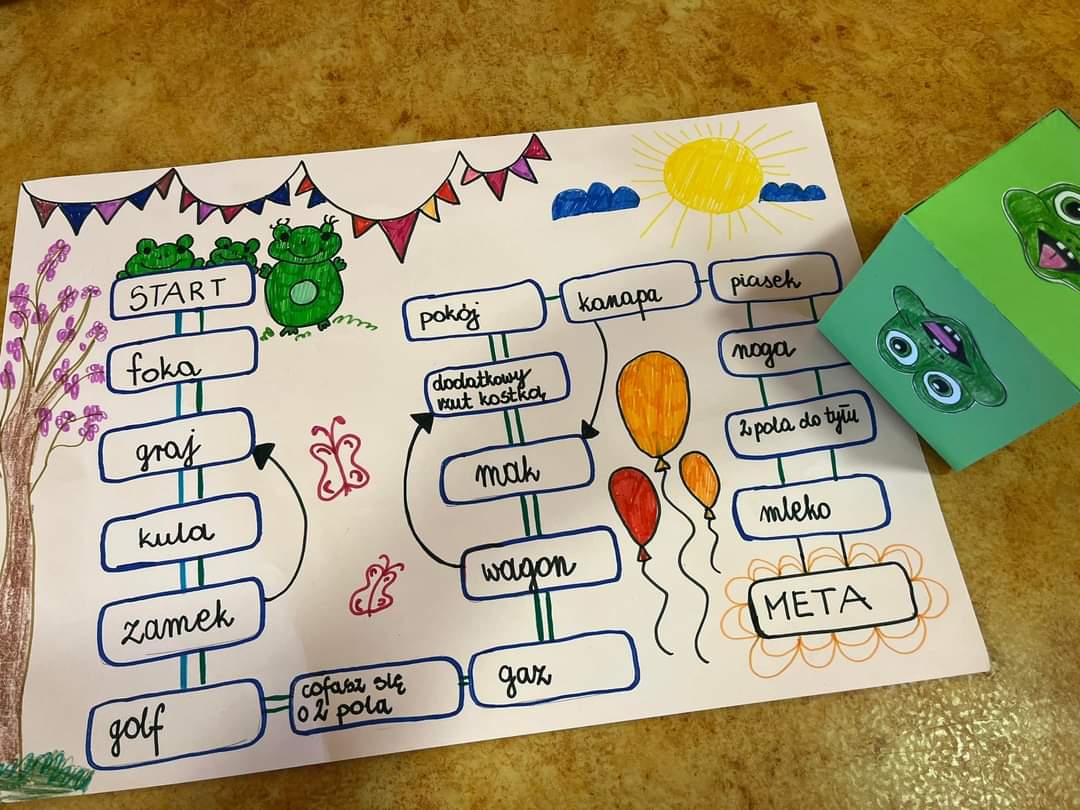 START
foka
graj
kula
zamek
golf
cofasz się
o 2 pola
gaz
wagon
mak
dodatkowy
rzut kostką
pokój
kanapa
piasek
noga
2 pola do tyłu
mleko
META